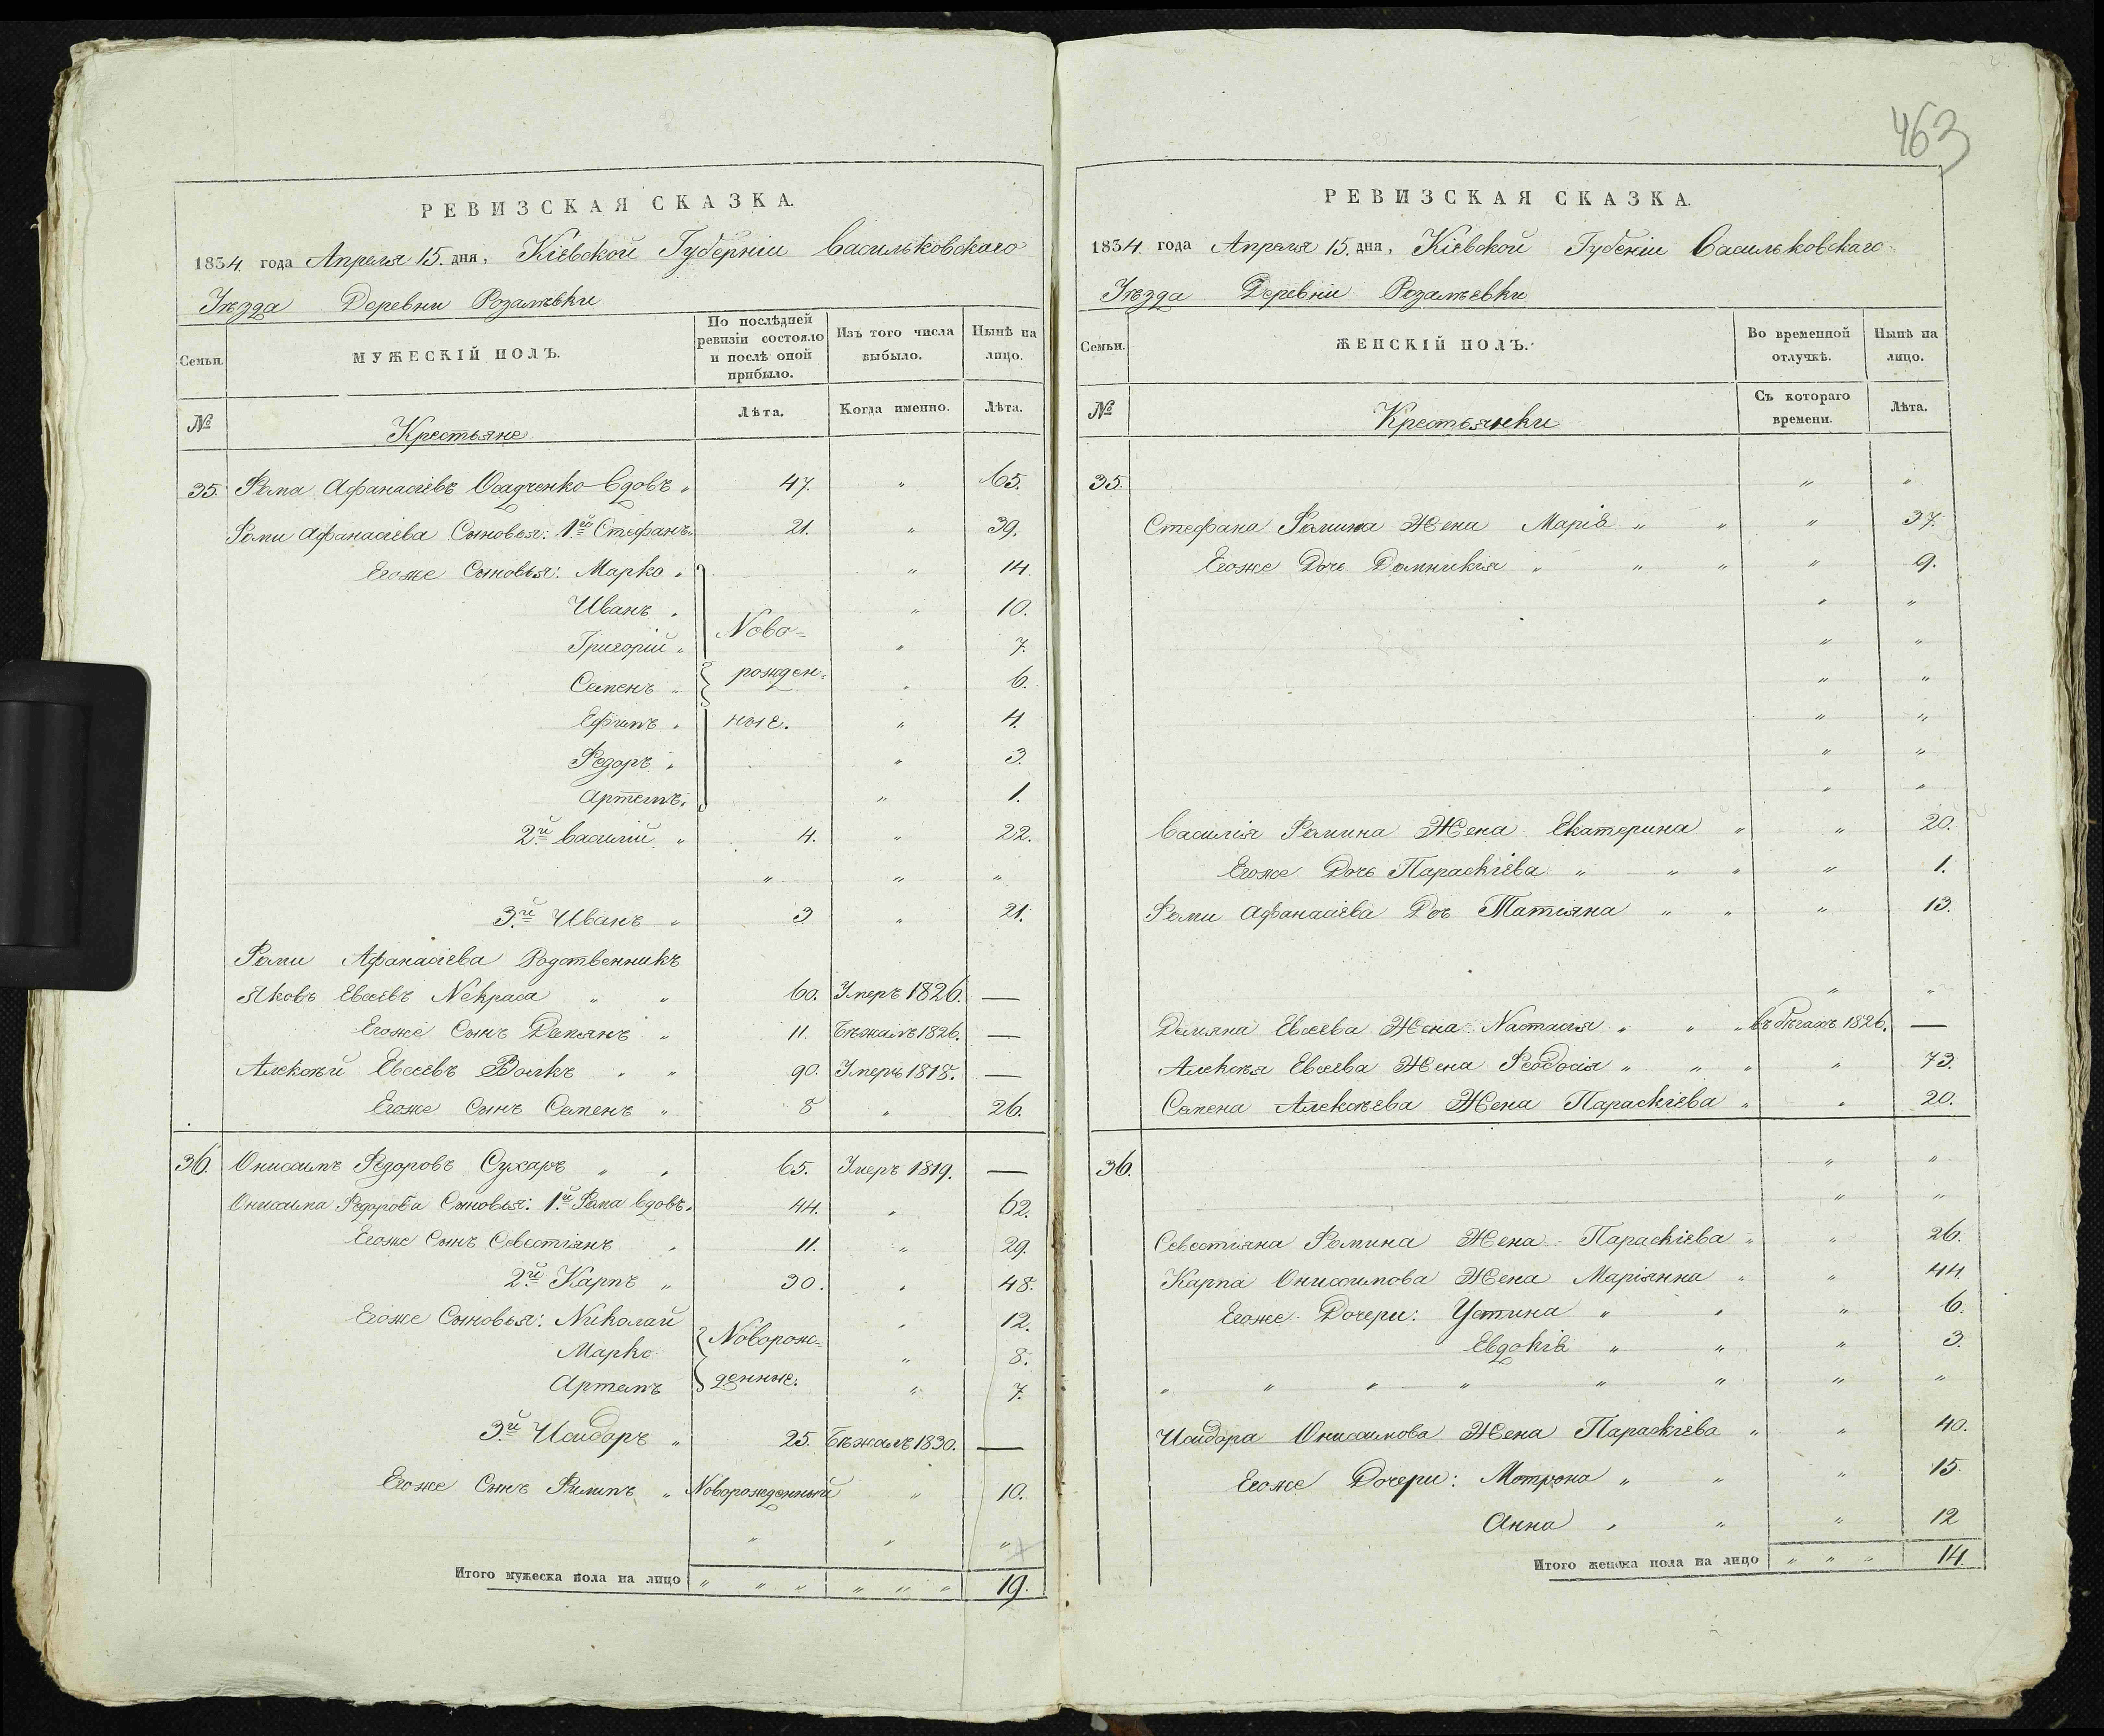 463
РЕВИЗСКАЯ СКАЗКА.
1834 года Апреля 15. дня, Кіевской Губерніи Васильковскаго
Уѣзда Деревни Розалѣвки
Семьи. МУЖЕСКІЙ ПОЛЪ. По послѣдней ревизіи состояло и послѣ оной прибыло. Изъ того числа выбыло. Нынѣ на лицо.
№ Крестьяне Лѣта. Когда именно. Лѣта.
35. Фома Афанасіевъ Осадченко Вдовъ „ 47. „ 65.
Фоми Афанасіева Сыновья: 1й Стефанъ „ 21. „ 39.
Егоже Сыновья: Марко „ „ 14.
Иванъ „ „ 10.
Григорій „ Ново= „ 7.
Семенъ „ рожден= „ 6.
Ефимъ „ ные. „ 4.
Федоръ „ „ 3.
Артемъ „ „ 1.
2й Василий „ 4. „ 22.
„ „ „
3й Иванъ „ 3 „ 21.
Фоми Афанасіева Родственникъ
Яковъ Евсеевъ Некраса „ „ 60. Умеръ 1826. —
Егоже Сынъ Демянъ „ 11. Бѣжалъ 1826. —
Алексѣй Евсеевъ Волкъ „ „ 90. Умеръ 1818. —
Егоже Сынъ Семенъ „ 8 „ 26.
36. Онисимъ Федоровъ Сухаръ „ „ 65. Умеръ 1819. —
Онисима Федорова Сыновья: 1й Фома Вдовъ „ 44. „ 62.
Егоже Сынъ Севестіянъ „ 11. „ 29.
2й Карпъ „ 30. „ 48.
Егоже Сыновья: Николай „ 12.
Марко Новорож= „ 8.
Артемъ денные. „ 7.
3й Исидоръ „ 25. Бѣжалъ 1830. —
Егоже Сынъ Филипъ „ Новорожденный „ 10.
„ „ „
Итого мужеска пола на лицо „ „ „ „ „ „ 19.
РЕВИЗСКАЯ СКАЗКА.
1834 года Апреля 15. дня, Кіевской Губеніи Васильковскаго
Уѣзда Деревни Розалѣевки
Семьи. ЖЕНСКІЙ ПОЛЪ. Во временной отлучкѣ. Нынѣ на лицо.
№ Крестьянки Съ котораго времени. Лѣта.
35. „ „
Стефана Фомина Жена Марія „ „ „ 37.
Егоже Дочь Домникія „ „ „ „ 9.
„ „
„ „
„ „
„ „
„ „
„ „
Василія Фомина Жена Екатерина „ „ 20.
Егоже Дочь Параскіева „ „ „ „ 1.
Фоми Афанасіева Доч Татіяна „ „ „ 13.
„ „
Демяна Евсеева Жена Настасія „ „ „ въ бѣгахъ 1826. —
Алексѣя Евсеева Жена Феодосія „ „ „ „ 73.
Семена Алексѣева Жена Параскіева „ „ 20.
36. „ „
„ „
Севестіяна Фомина Жена Параскіева „ „ 26.
Карпа Онисимова Жена Маріянна „ „ 44.
Егоже Дочери: Устина „ „ „ 6.
Евдокія „ „ „ 3.
„ „ „ „ „ „ „ „
Исидора Онисимова Жена Параскіева „ „ 40.
Егоже Дочери: Мотрона „ „ „ 15.
Анна „ „ „ 12
Итого женска пола на лицо „ „ „ 14.